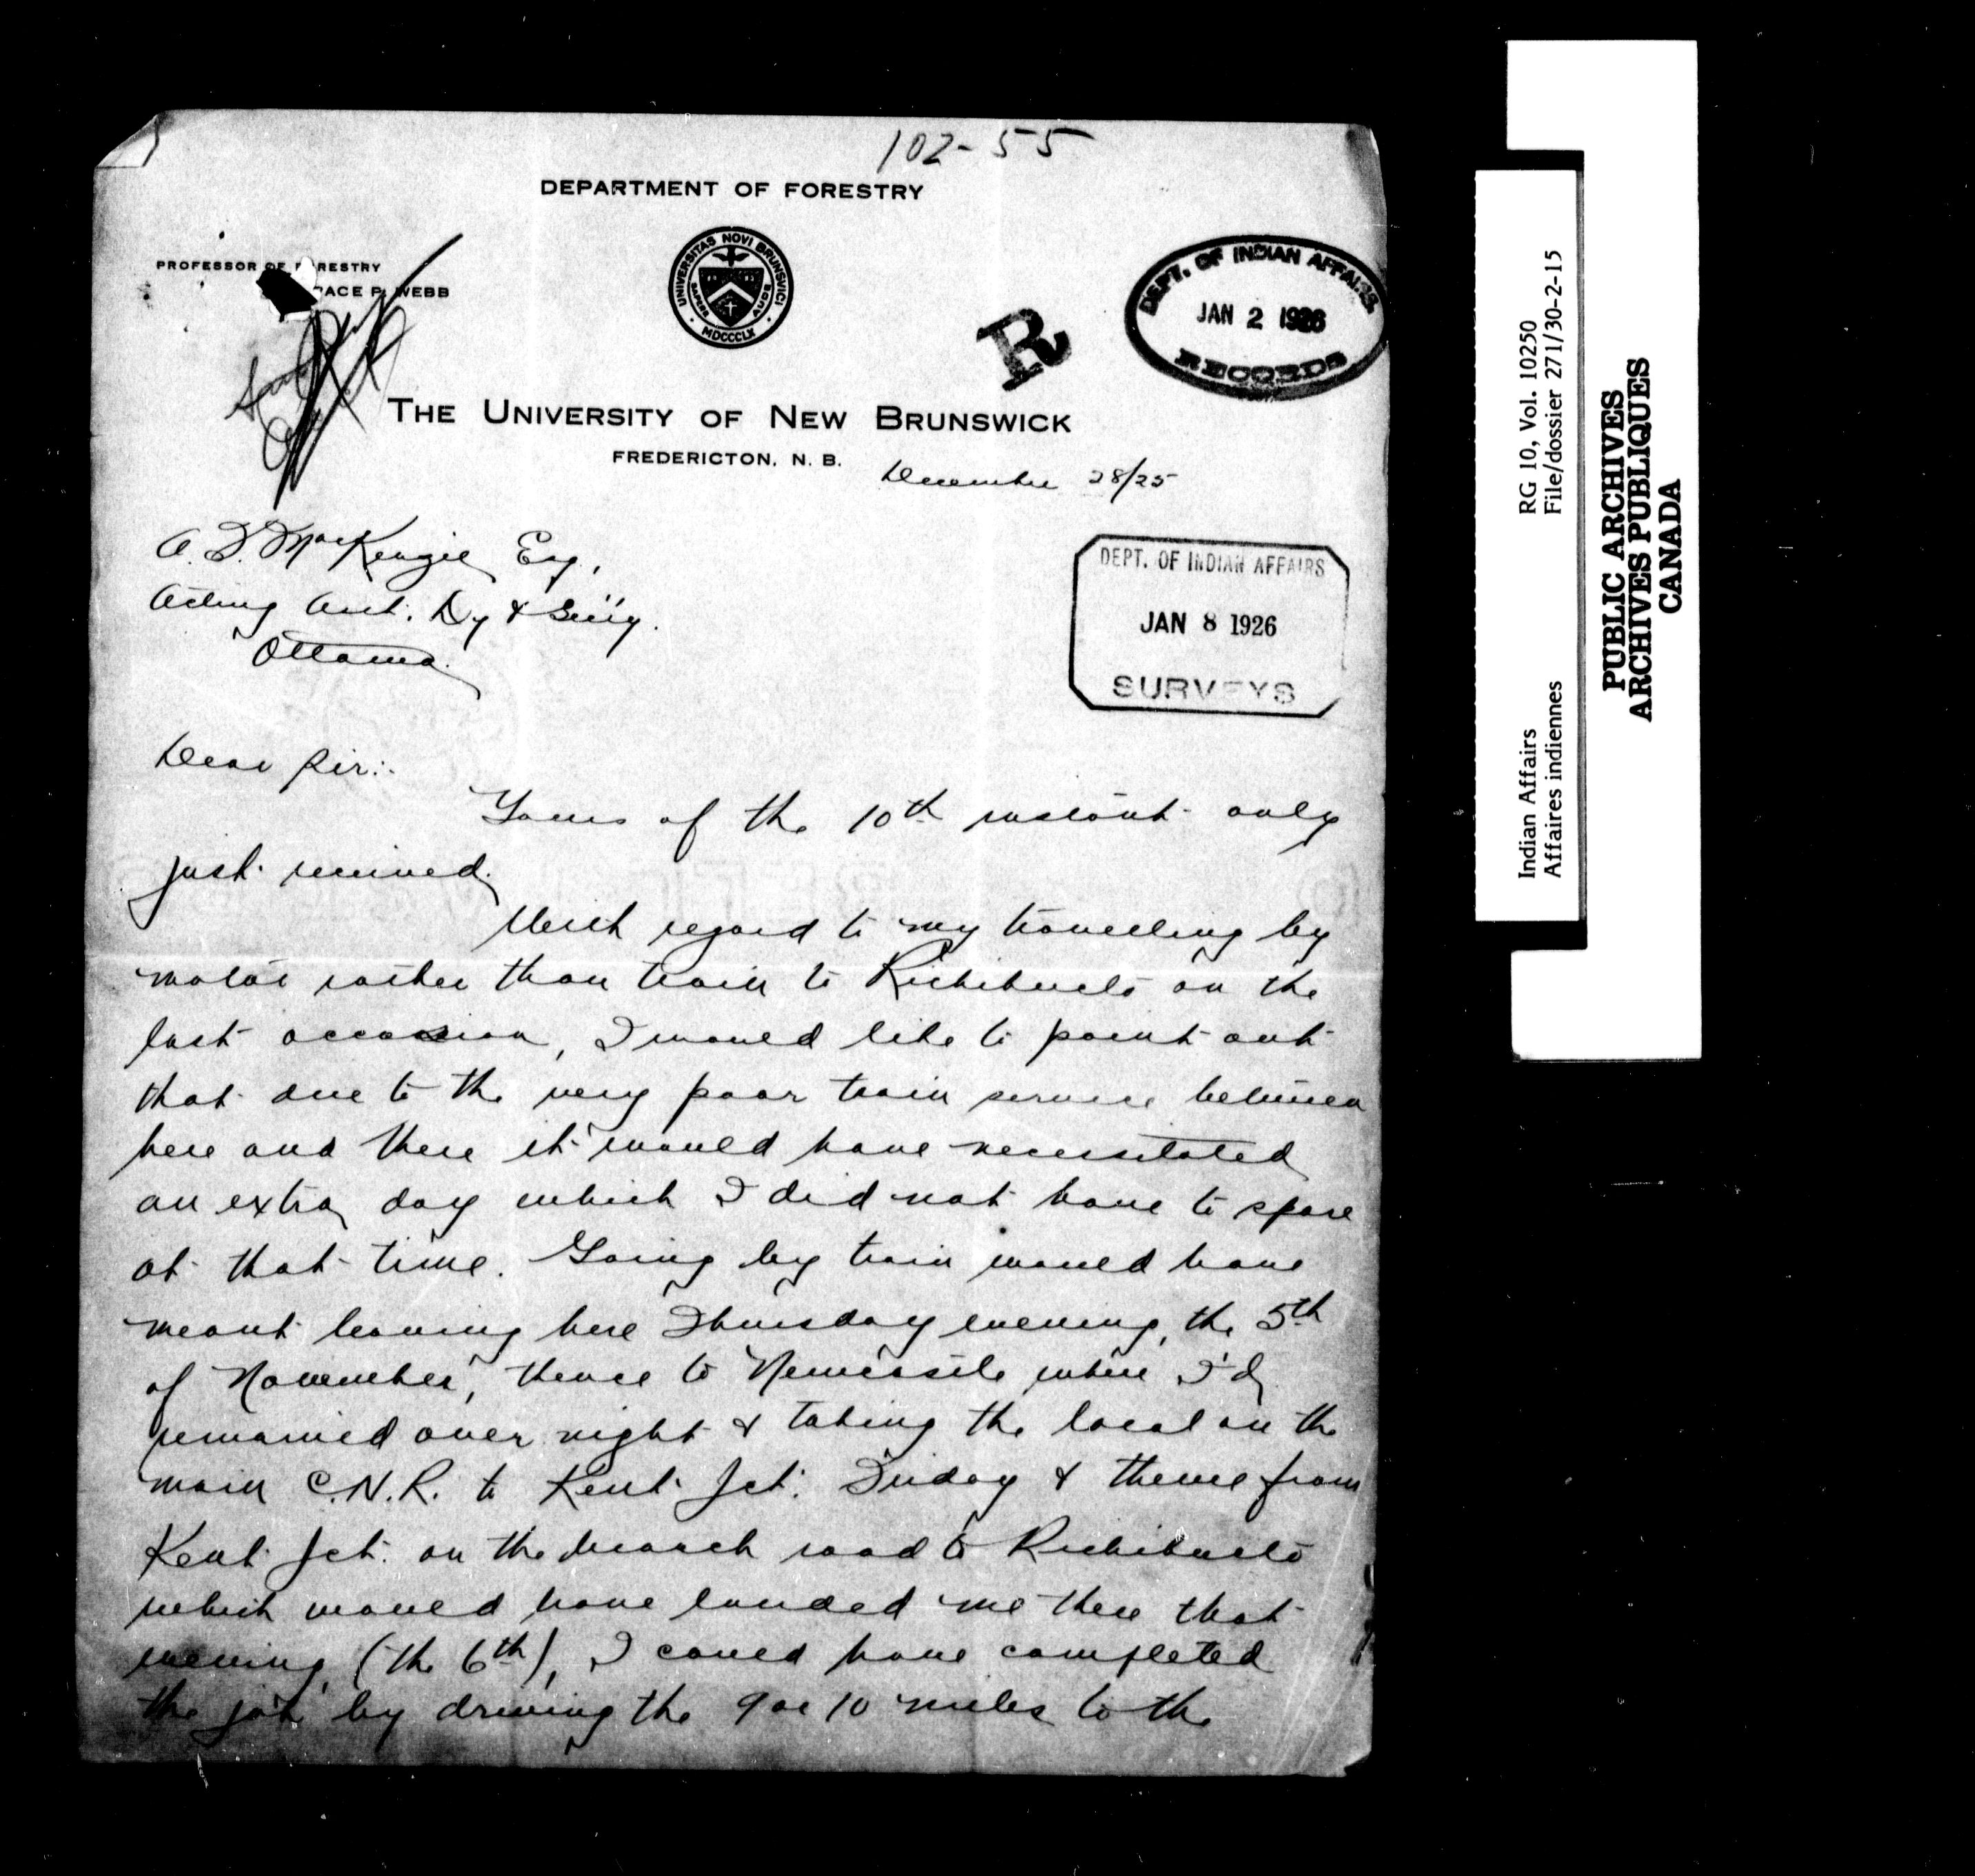 102-55
DEPARTMENT OF FORESTRY
PROFESSOR OF FORESTRY
ACE P. WEBB
UNIVERSITAS NOVI BRUNSVICI
SAPERE AUDE
MDCCCLX
R
DEPT. OF INDIAN AFFAIRS.
JAN 2 1926
RECORDS
THE UNIVERSITY OF NEW BRUNSWICK
FREDERICTON, N. B.
December 28/25
A. F. MacKenzie Esq,
Acting Asst. Dy & Sec'y.
Ottawa.
DEPT. OF INDIAN AFFAIRS
JAN 8 1926
SURVEYS
Dear Sir:-
Yours of the 10th instant only
just received.
With regard to my travelling by
motor rather than train to Richibucto on the
last occasion, I would like to point out
that due to the very poor train service between
here and there it would have necessitated
an extra day which I did not have to spare
at that time. Going by train would have
meant leaving here Thursday evening, the 5th
of November, thence to Newcastle where I'd
remained over night & taking the local on the
main C.N.R. to Kent Jct. Friday & thence from
Kent Jct. on the branch road to Richibucto
which would have landed me there that
evening (the 6th), I could have completed
the job by driving the 9 or 10 miles to the
RG 10, Vol. 10250
File/dossier 271/30-2-15
Indian Affairs
Affaires indiennes
PUBLIC ARCHIVES
ARCHIVES PUBLIQUES
CANADA